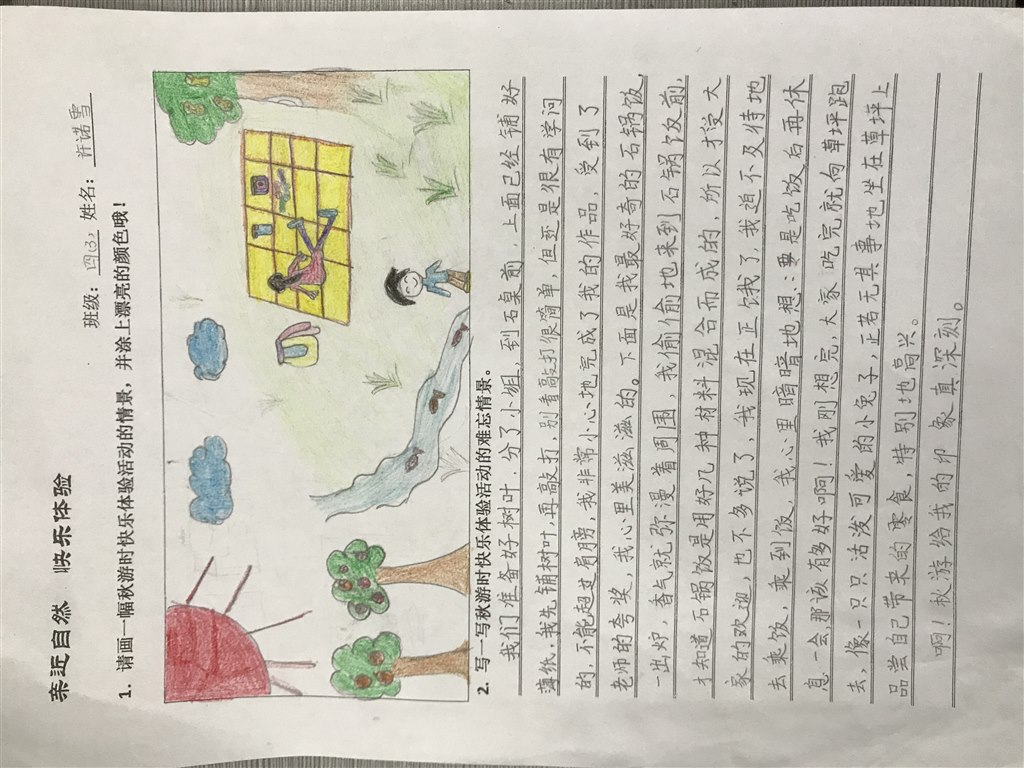 亲近自然 快乐体验
班级：四(3) 姓名：许诺雪
1. 请画一幅秋游时快乐体验活动的情景，并涂上漂亮的颜色哦！
2. 写一写秋游时快乐体验活动的难忘情景。
我们准备好树叶，分了小组，到石桌前，上面已经铺好
薄纸，我先铺树叶，再敲打，别看敲打很简单，但还是很有学问
的，不能超过肩膀，我非常小心地完成了我的作品，受到了
老师的夸奖，我心里美滋滋的。下面是我最好奇的石锅饭
一出炉，香气就弥漫着周围，我偷偷地来到石锅饭前，
才知道石锅饭是用好几种材料混合而成的，所以才受大
家的欢迎，也不多说了，我现在正饿了，我迫不及待地
去乘饭，乘到饭，我心里暗暗地想：要是吃饭后再休
息一会，那该有多好啊！我刚想完，大家吃完就向草坪跑
去，像一只只活泼可爱的小兔子，正若无其事地坐在草坪上
品尝自己带来的零食，特别地高兴。
啊！秋游给我的印象真深刻。